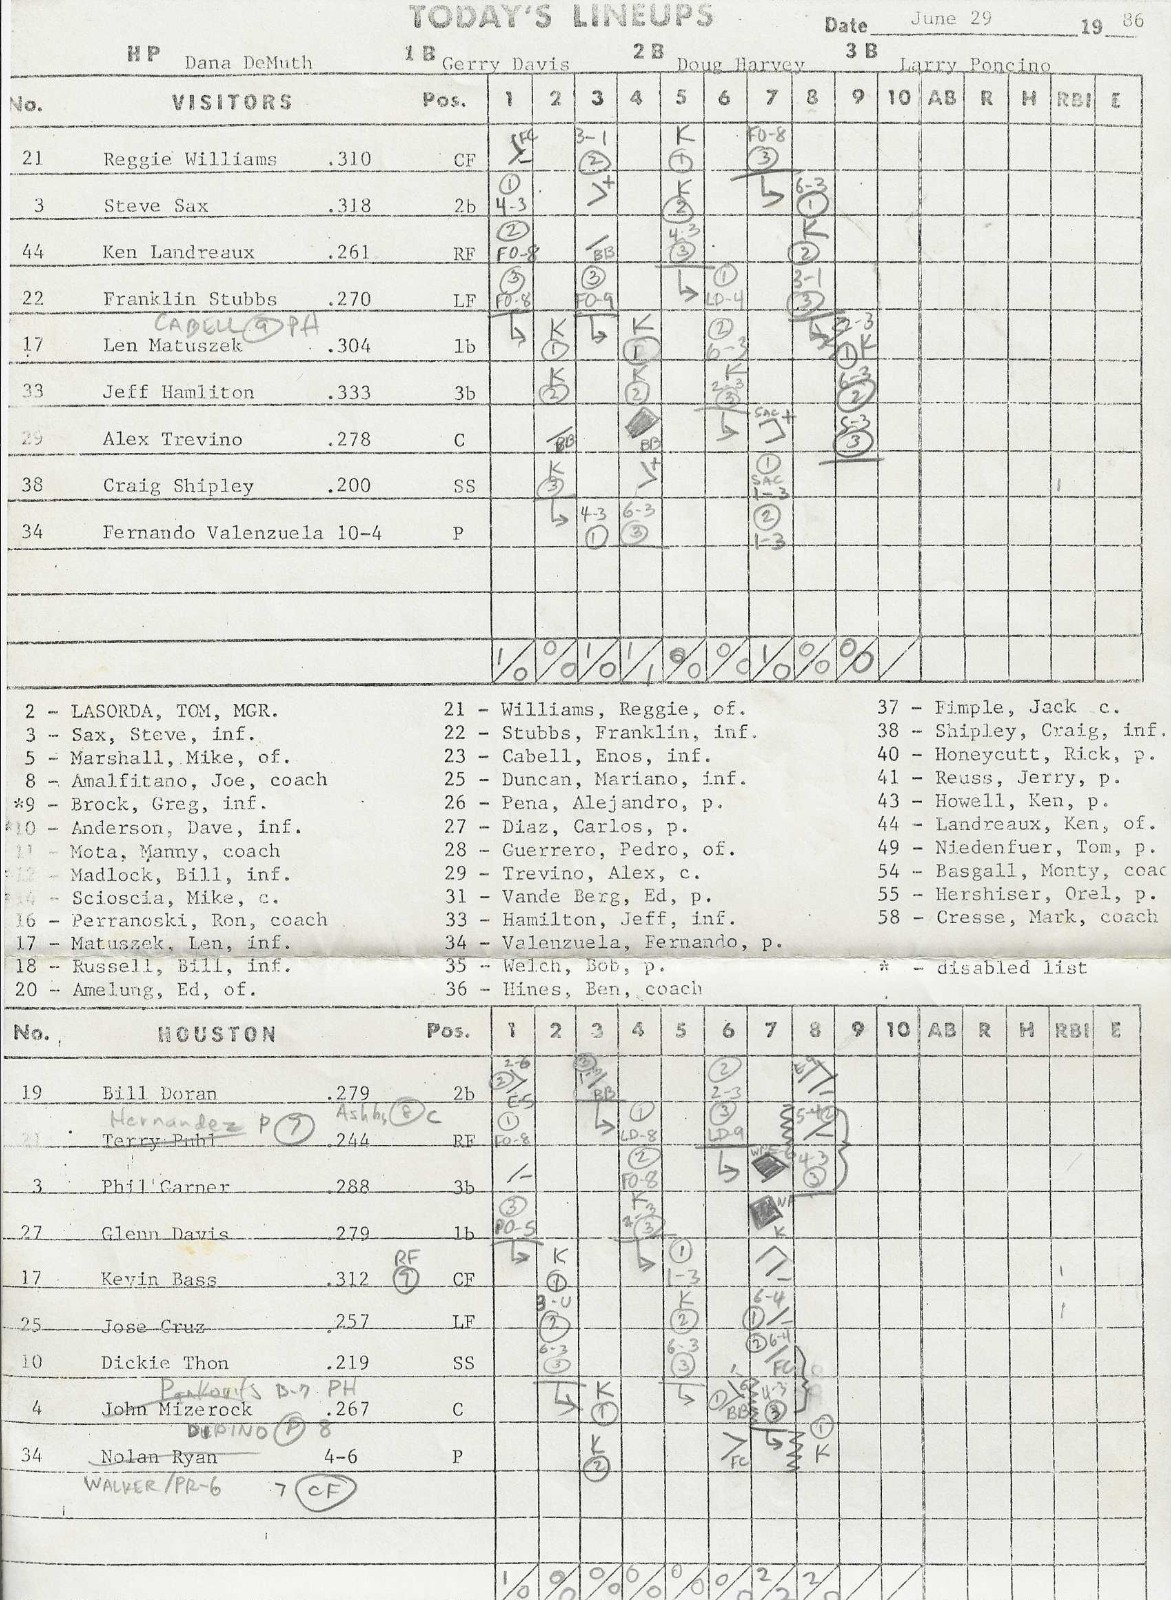 TODAY'S LINEUPS
Date June 29 19 86
HP Dana DeMuth 1B Gerry Davis 2B Doug Harvey 3B Larry Poncino
No. VISITORS Pos. 1 2 3 4 5 6 7 8 9 10 AB R H RBI E
21 Reggie Williams .310 CF FC 3-1 2 K 1 FO-8 3
3 Steve Sax .318 2b 1 4-3 K 2 6-3 1
44 Ken Landreaux .261 RF 2 FO-8 BB 4-3 3 K 2
22 Franklin Stubbs .270 LF 3 FO-8 3 FO-9 1 LD-4 3-1 3
CABELL 9 PH
17 Len Matuszek .304 1b K 1 K 1 2 6-3 2-3 1 K
33 Jeff Hamliton .333 3b K 2 K 2 K 2-3 3 6-3 2
29 Alex Trevino .278 C BB BB SAC 5-3 3
38 Craig Shipley .200 SS K 3 1 SAC 1-3
34 Fernando Valenzuela 10-4 P 4-3 1 6-3 3 2 1-3
1/0 0/0 1/0 1/1 0/0 0/0 1/0 0/0 0/0
2 - LASORDA, TOM, MGR.
3 - Sax, Steve, inf.
5 - Marshall, Mike, of.
8 - Amalfitano, Joe, coach
*9 - Brock, Greg, inf.
*10 - Anderson, Dave, inf.
11 - Mota, Manny, coach
*12 - Madlock, Bill, inf.
*14 - Scioscia, Mike, c.
16 - Perranoski, Ron, coach
17 - Matuszek, Len, inf.
18 - Russell, Bill, inf.
20 - Amelung, Ed, of.
21 - Williams, Reggie, of.
22 - Stubbs, Franklin, inf.
23 - Cabell, Enos, inf.
25 - Duncan, Mariano, inf.
26 - Pena, Alejandro, p.
27 - Diaz, Carlos, p.
28 - Guerrero, Pedro, of.
29 - Trevino, Alex, c.
31 - Vande Berg, Ed, p.
33 - Hamilton, Jeff, inf.
34 - Valenzuela, Fernando, p.
35 - Welch, Bob, p.
36 - Hines, Ben, coach
37 - Fimple, Jack c.
38 - Shipley, Craig, inf.
40 - Honeycutt, Rick, p.
41 - Reuss, Jerry, p.
43 - Howell, Ken, p.
44 - Landreaux, Ken, of.
49 - Niedenfuer, Tom, p.
54 - Basgall, Monty, coac
55 - Hershiser, Orel, p.
58 - Cresse, Mark, coach
* - disabled list
No. HOUSTON Pos. 1 2 3 4 5 6 7 8 9 10 AB R H RBI E
19 Bill Doran .279 2b 2-6 2 E5 3 BB 2 2-3
Hernandez P 7 Ashby 8 C
21 Terry Puhl .244 RF 1 FO-8 1 LD-8 3 LD-9 5-4 2
3 Phil Garner .288 3b 2 FO-8 4-3 3
27 Glenn Davis .279 1b 3 PO-5 K 2-3 3 K
RF 7
17 Kevin Bass .312 CF K 1 1 1-3
25 Jose Cruz .257 LF 3-U 2 K 2 6-4 1
10 Dickie Thon .219 SS 6-3 3 6-3 3 2 6-4 FC
Pankovits B-7 PH
4 John Mizerock .267 C K 1 1 BB 4-3 3
DIPINO P 8
34 Nolan Ryan 4-6 P K 2 FC 1 K
WALKER/PR-6 7 CF
1/0 0/0 0/0 0/0 0/0 0/0 2/2 2/0